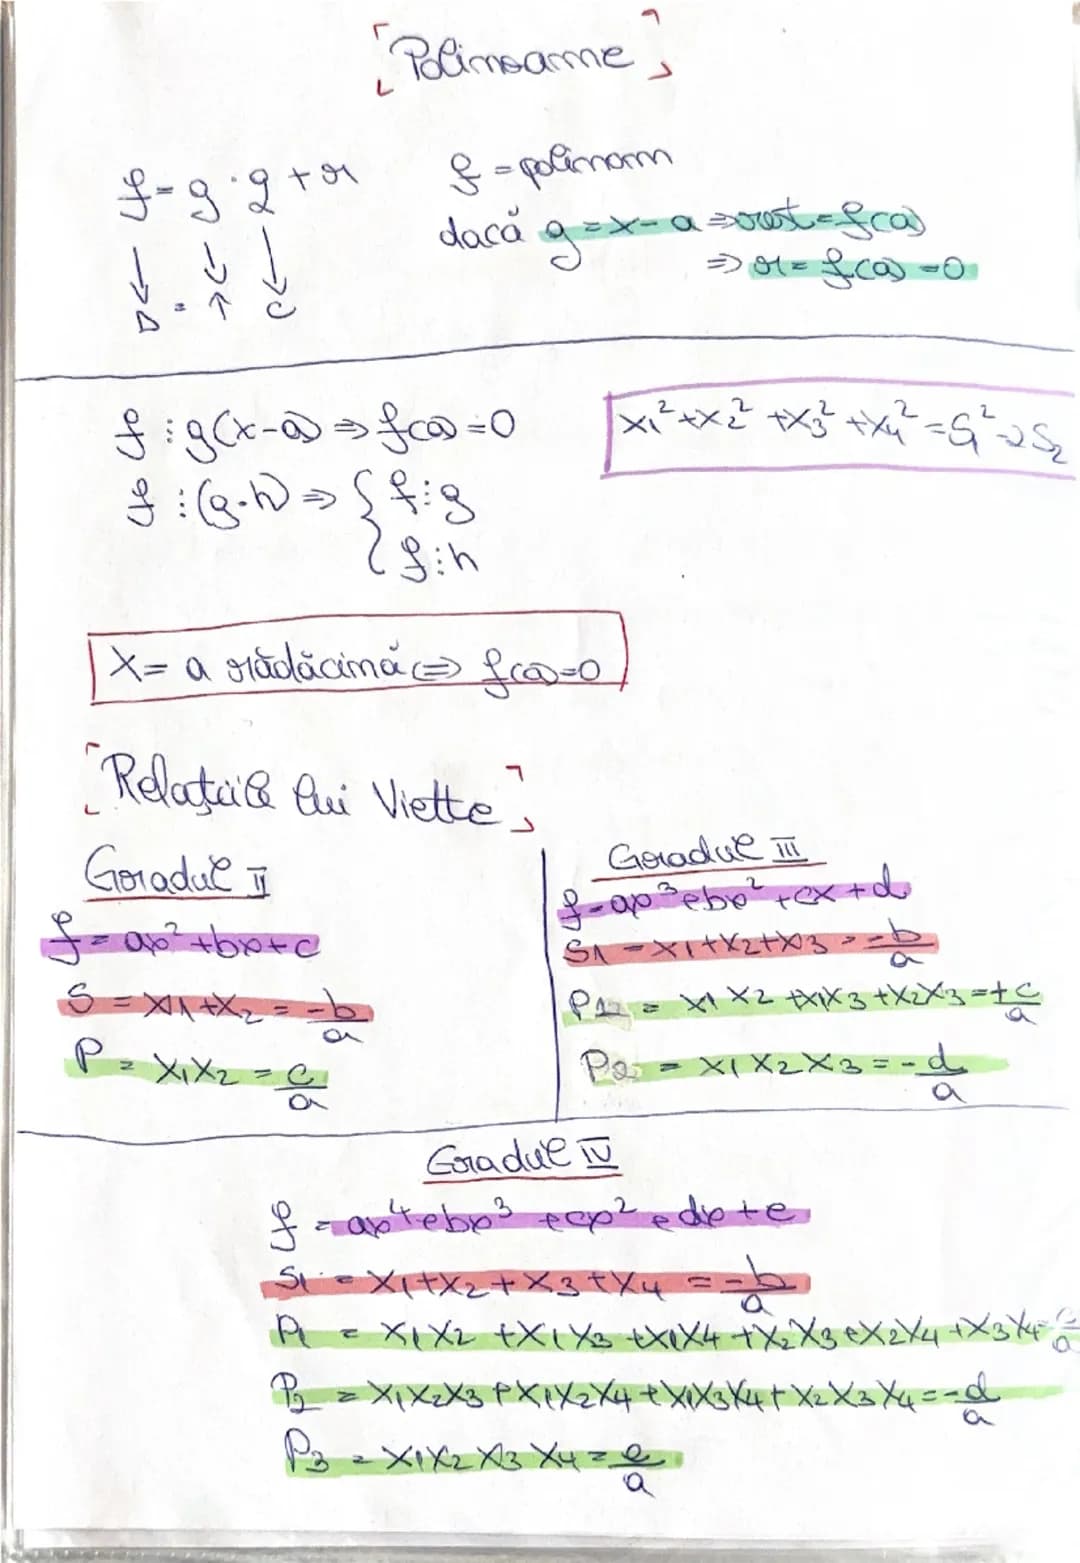 Polinoame
f = g · q + r
↓ ↓ ↓
D = Î C
f = polinom
dacă g = x - a ⇒ rest = f(a)
⇒ r = f(a) = 0
f ⋮ g(x-a) ⇒ f(a) = 0
f ⋮ (g·h) ⇒ { f ⋮ g
f ⋮ h
x₁² + x₂² + x₃² + x₄² = S₁² - 2S₂
X = a rădăcină ⇔ f(a) = 0
Relațiile lui Viette
Gradul II
f = ax² + bx + c
S = x₁ + x₂ = -b/a
P = x₁x₂ = c/a
Gradul III
f = ax³ + bx² + cx + d
S₁ = x₁ + x₂ + x₃ = -b/a
P₁ = x₁x₂ + x₁x₃ + x₂x₃ = +c/a
P₂ = x₁x₂x₃ = -d/a
Gradul IV
f = ax⁴ + bx³ + cx² + dx + e
S₁ = x₁ + x₂ + x₃ + x₄ = -b/a
P₁ = x₁x₂ + x₁x₃ + x₁x₄ + x₂x₃ + x₂x₄ + x₃x₄ = c/a
P₂ = x₁x₂x₃ + x₁x₂x₄ + x₁x₃x₄ + x₂x₃x₄ = -d/a
P₃ = x₁x₂x₃x₄ = e/a